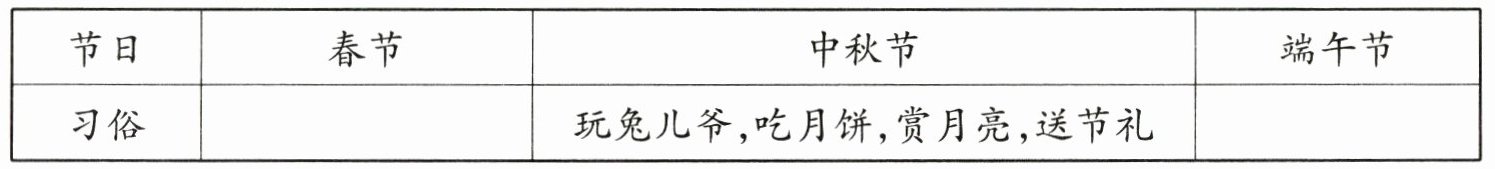 节日 春节 中秋节 端午节
习俗 玩兔儿爷,吃月饼,赏月亮,送节礼